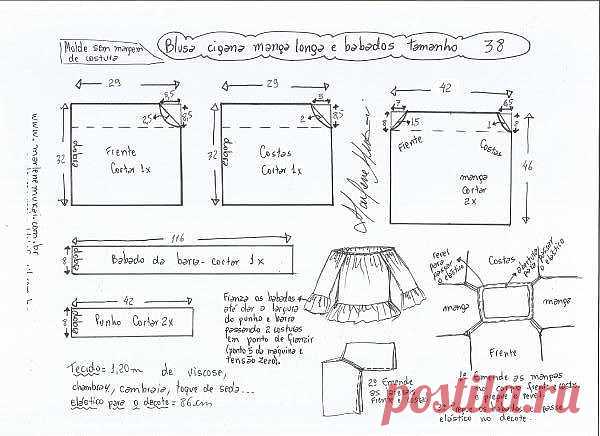 Molde sem margem
de costura
Blusa cigana manga longa e babados tamanho 38
29
8,5
8,5
2,5
32
dobra
Frente
Cortar 1x
29
2
32
dobra
Costas
Cortar 1x
42
7
6,5
8
1,5
1
8
Frente
Costas
46
manga
Cortar
2x
www.marlenemukai.com.br
116
8
dobra
Babado da barra- cortar 1x
42
8
dobra
Punho Cortar 2x
Franza os babados
até dar a largura
do punho e barra
passando 2 costuras
em ponto de franzir
(ponto 5 da máquina e
tensão zero).
revel
para
passar
o elástico
Costas
abertura
para passar
o elástico
manga
manga
Frente
Tecido= 1,20m de viscose,
chambray, cambraia, toque de seda...
elástico para o decote= 86cm
2º Emende
as laterais
Frente e Costas
1º Emende as mangas
elástico no decote...
postila.ru